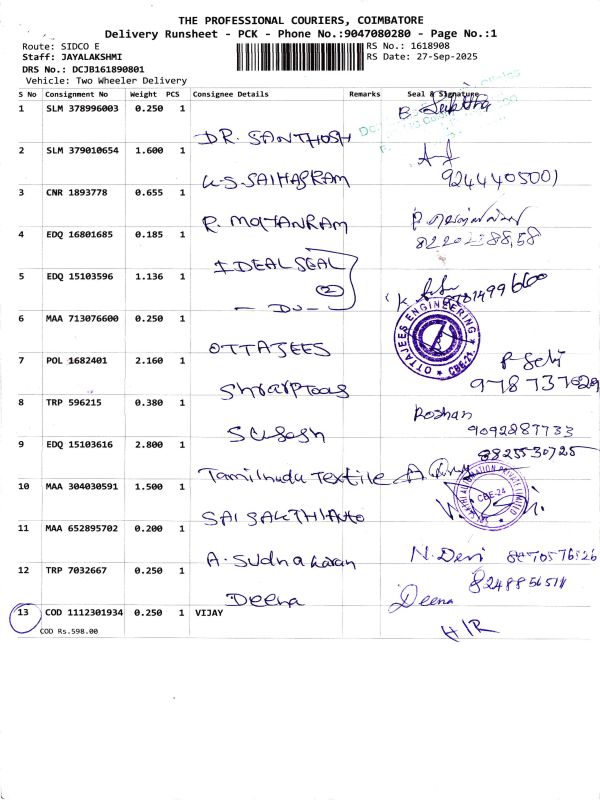 THE PROFESSIONAL COURIERS, COIMBATORE
Delivery Runsheet - PCK - Phone No.:9047080280 - Page No.:1
Route: SIDCO E
RS No.: 1618908
Staff: JAYALAKSHMI
RS Date: 27-Sep-2025
DRS No.: DCJB161890801
Vehicle: Two Wheeler Delivery
S No Consignment No Weight PCS Consignee Details Remarks Seal & Signature
1 SLM 378996003 0.250 1
DR. SANTHOSH
2 SLM 379010654 1.600 1
9244405001
U.S. SAIHARRAM
3 CNR 1893778 0.655 1
R. MOHANRAM
4 EDQ 16801685 0.185 1
IDEAL SEAL
5 EDQ 15103596 1.136 1
(2)
- Do -
6 MAA 713076600 0.250 1
OTTAJEES ENGINEERING
CBE-21
OTTAJEES
7 POL 1682401 2.160 1
9787137029
Sharptools
8 TRP 596215 0.380 1
Roshan
9092287733
Sugash
9 EDQ 15103616 2.800 1
8825530725
Tamilnadu Textile
10 MAA 304030591 1.500 1
CBE-24
SAI SAKTHI AUTO
11 MAA 652895702 0.200 1
N. Devi
A. Sudhakaran
12 TRP 7032667 0.250 1
Deena
Deena
13 COD 1112301934 0.250 1 VIJAY
COD Rs.598.00
H/R